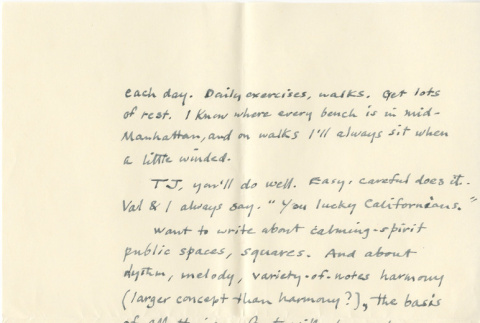 each day. Daily exercises, walks. Get lots
of rest. I know where every bench is in mid-
Manhattan, and on walks I'll always sit when
a little winded.
TJ, you'll do well. Easy, careful does it.
Val & I always say. "You lucky Californians."
Want to write about calming-spirit
public spaces, squares. And about
rhythm, melody, variety-of-notes harmony
(larger concept than harmony?), the basis
of all